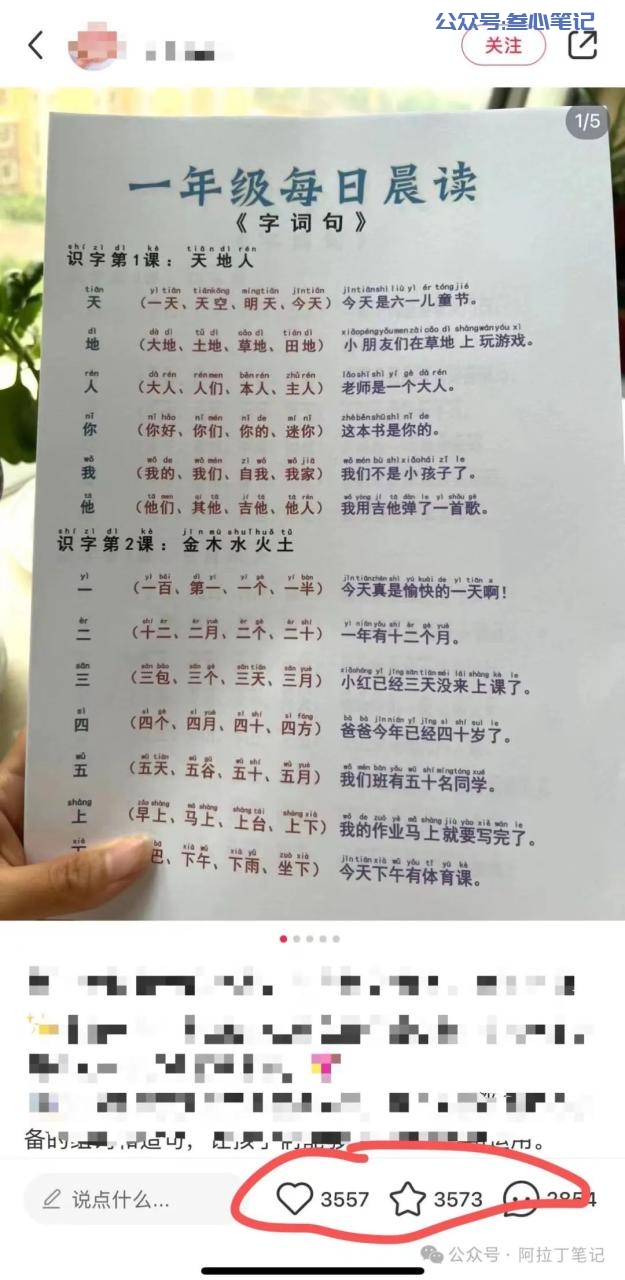 公众号:叁心笔记
关注
1/5
一年级每日晨读
《字词句》
shí zì dì kè tiān dì rén
识字第1课：天地人
tiān yì tiān tiānkōng míngtiān jīntiān jīntiānshì liù yī ér tóngjié
天 （一天、天空、明天、今天）今天是六一儿童节。
dì dà dì tǔ dì cǎo dì tián dì xiǎopéngyǒumenzài cǎo dì shàngwányóu xì
地 （大地、土地、草地、田地） 小朋友们在草地上玩游戏。
rén dà rén rénmen běnrén zhǔrén lǎoshīshì yí gè dà rén
人 （大人、人们、本人、主人） 老师是一个大人。
nǐ nǐ hǎo nǐ men nǐ de mí nǐ zhèběnshūshì nǐ de
你 （你好、你们、你的、迷你） 这本书是你的。
wǒ wǒ de wǒ men zì wǒ wǒ jiā wǒ men bú shì xiǎohái zi le
我 （我的、我们、自我、我家） 我们不是小孩子了。
tā tā men qí tā jí tā tā rén wǒ yòng jí tā dàn le yì shǒu gē
他 （他们、其他、吉他、他人） 我用吉他弹了一首歌。
shí zì dì kè jīn mù shuǐ huǒ tǔ
识字第2课：金木水火土
yī yì bǎi dì yī yí gè yí bàn jīntiānzhēn shì yú kuài de yì tiān a
一 （一百、第一、一个、一半） 今天真是愉快的一天啊！
èr shí èr èr yuè èr gè èr shí yì niányǒu shí èr gè yuè
二 （十二、二月、二个、二十） 一年有十二个月。
sān sān bāo sān gè sān tiān sān yuè xiǎohóng yǐ jīng sān tiān méi lái shàng kè le
三 （三包、三个、三天、三月） 小红已经三天没来上课了。
sì sì gè sì yuè sì shí sì fāng bà bà jīn nián yǐ jīng sì shí suì le
四 （四个、四月、四十、四方） 爸爸今年已经四十岁了。
wǔ wǔ tiān wǔ gǔ wǔ shí wǔ yuè wǒ men bān yǒu wǔ shí míng tóng xué
五 （五天、五谷、五十、五月） 我们班有五十名同学。
shàng zǎo shàng mǎ shàng shàng tái shàng xià wǒ de zuò yè mǎ shàng jiù yào xiě wán le
上 （早上、马上、上台、上下） 我的作业马上就要写完了。
xià bā xià wǔ xià yǔ zuò xià jīn tiān xià wǔ yǒu tǐ yù kè
巴、下午、下雨、坐下） 今天下午有体育课。
说点什么...
3557
3573
2854
公众号·阿拉丁笔记